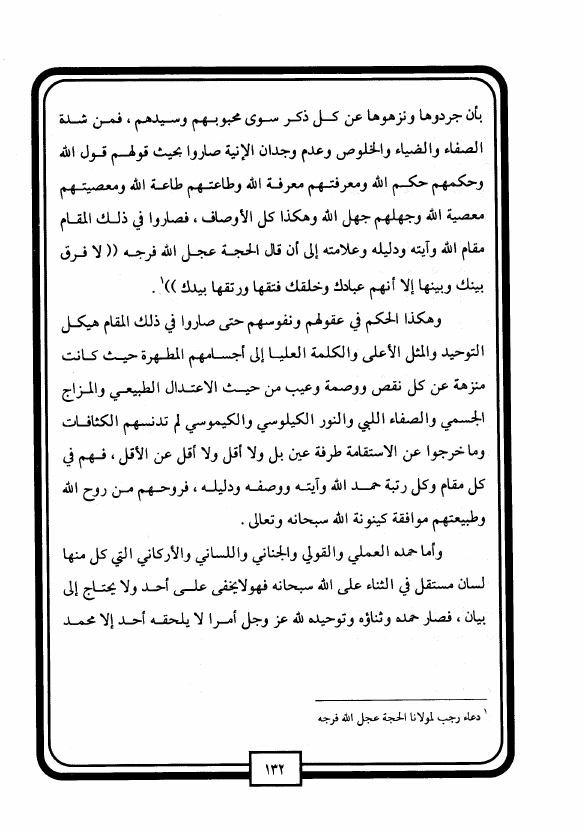 بأن جردوها ونزهوها عن كل ذكر سوى محبوبهم وسيدهم ، فمن شدة
الصفاء والضياء والخلوص وعدم وجدان الإنية صاروا بحيث قولهم قول الله
وحكمهم حكم الله ومعرفتهم معرفة الله وطاعتهم طاعة الله ومعصيتهم
معصية الله وجهلهم جهل الله وهكذا كل الأوصاف ، فصاروا في ذلك المقام
مقام الله وآيته ودليله وعلامته إلى أن قال الحجة عجل الله فرجه (( لا فرق
بينك وبينها إلا أنهم عبادك وخلقك فتقها ورتقها بيدك ))¹ .
وهكذا الحكم في عقولهم ونفوسهم حتى صاروا في ذلك المقام هيكل
التوحيد والمثل الأعلى والكلمة العليا إلى أجسامهم المطهرة حيث كانت
منزهة عن كل نقص ووصمة وعيب من حيث الاعتدال الطبيعي والمزاج
الجسمي والصفاء اللبي والنور الكيلوسي والكيموسي لم تدنسهم الكثافات
وما خرجوا عن الاستقامة طرفة عين بل ولا أقل ولا أقل عن الأقل ، فهم في
كل مقام وكل رتبة حمد الله وآيته ووصفه ودليله ، فروحهم من روح الله
وطبيعتهم موافقة كينونة الله سبحانه وتعالى .
وأما حمده العملي والقولي والجناني واللساني والأركاني التي كل منها
لسان مستقل في الثناء على الله سبحانه فهو لا يخفى على أحد ولا يحتاج إلى
بيان ، فصار حمده وثناؤه وتوحيده لله عز وجل أمرا لا يلحقه أحد إلا محمد
¹ دعاء رجب لمولانا الحجة عجل الله فرجه
١٣٢